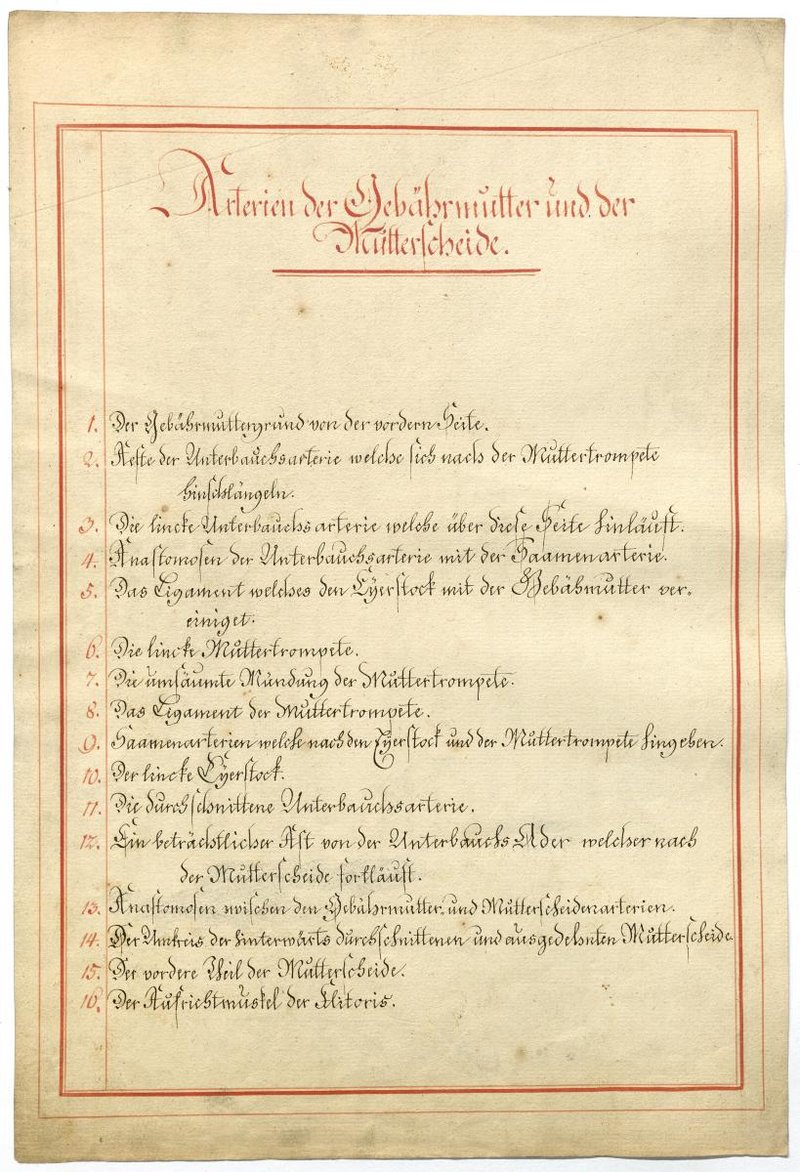 Arterien der Gebährmutter und der
Mutterscheide.
1. Der Gebährmuttergrund von der vordern Seite.
2. Aeste der Unterbauchsarterie welche sich nach der Muttertrompete
hinschlängeln.
3. Die lincke Unterbauchsarterie welche über diese Seite hinläuft.
4. Anastomosen der Unterbauchsarterie mit der Saamenarterie.
5. Das Ligament welches den Eyerstock mit der Gebähmutter ver-
einiget.
6. Die lincke Muttertrompete.
7. Die umsäumte Mündung der Muttertrompete.
8. Das Ligament der Muttertrompete.
9. Saamenarterien welche nach den Eyerstock und der Muttertrompete hingehen.
10. Der lincke Eyerstock.
11. Die durchschnittene Unterbauchsarterie.
12. Ein beträchtlicher Ast von der Unterbauchs Ader welcher nach
der Mutterscheide fortläuft.
13. Anastomosen zwischen den Gebährmutter, und Mutterscheidenarterien.
14. Der Umkreis der hinterwärts durchschnittenen und ausgedehnten Mutterscheide.
15. Der vordere Theil der Mutterscheide.
16. Der Aufrichtmuskel der Klitoris.